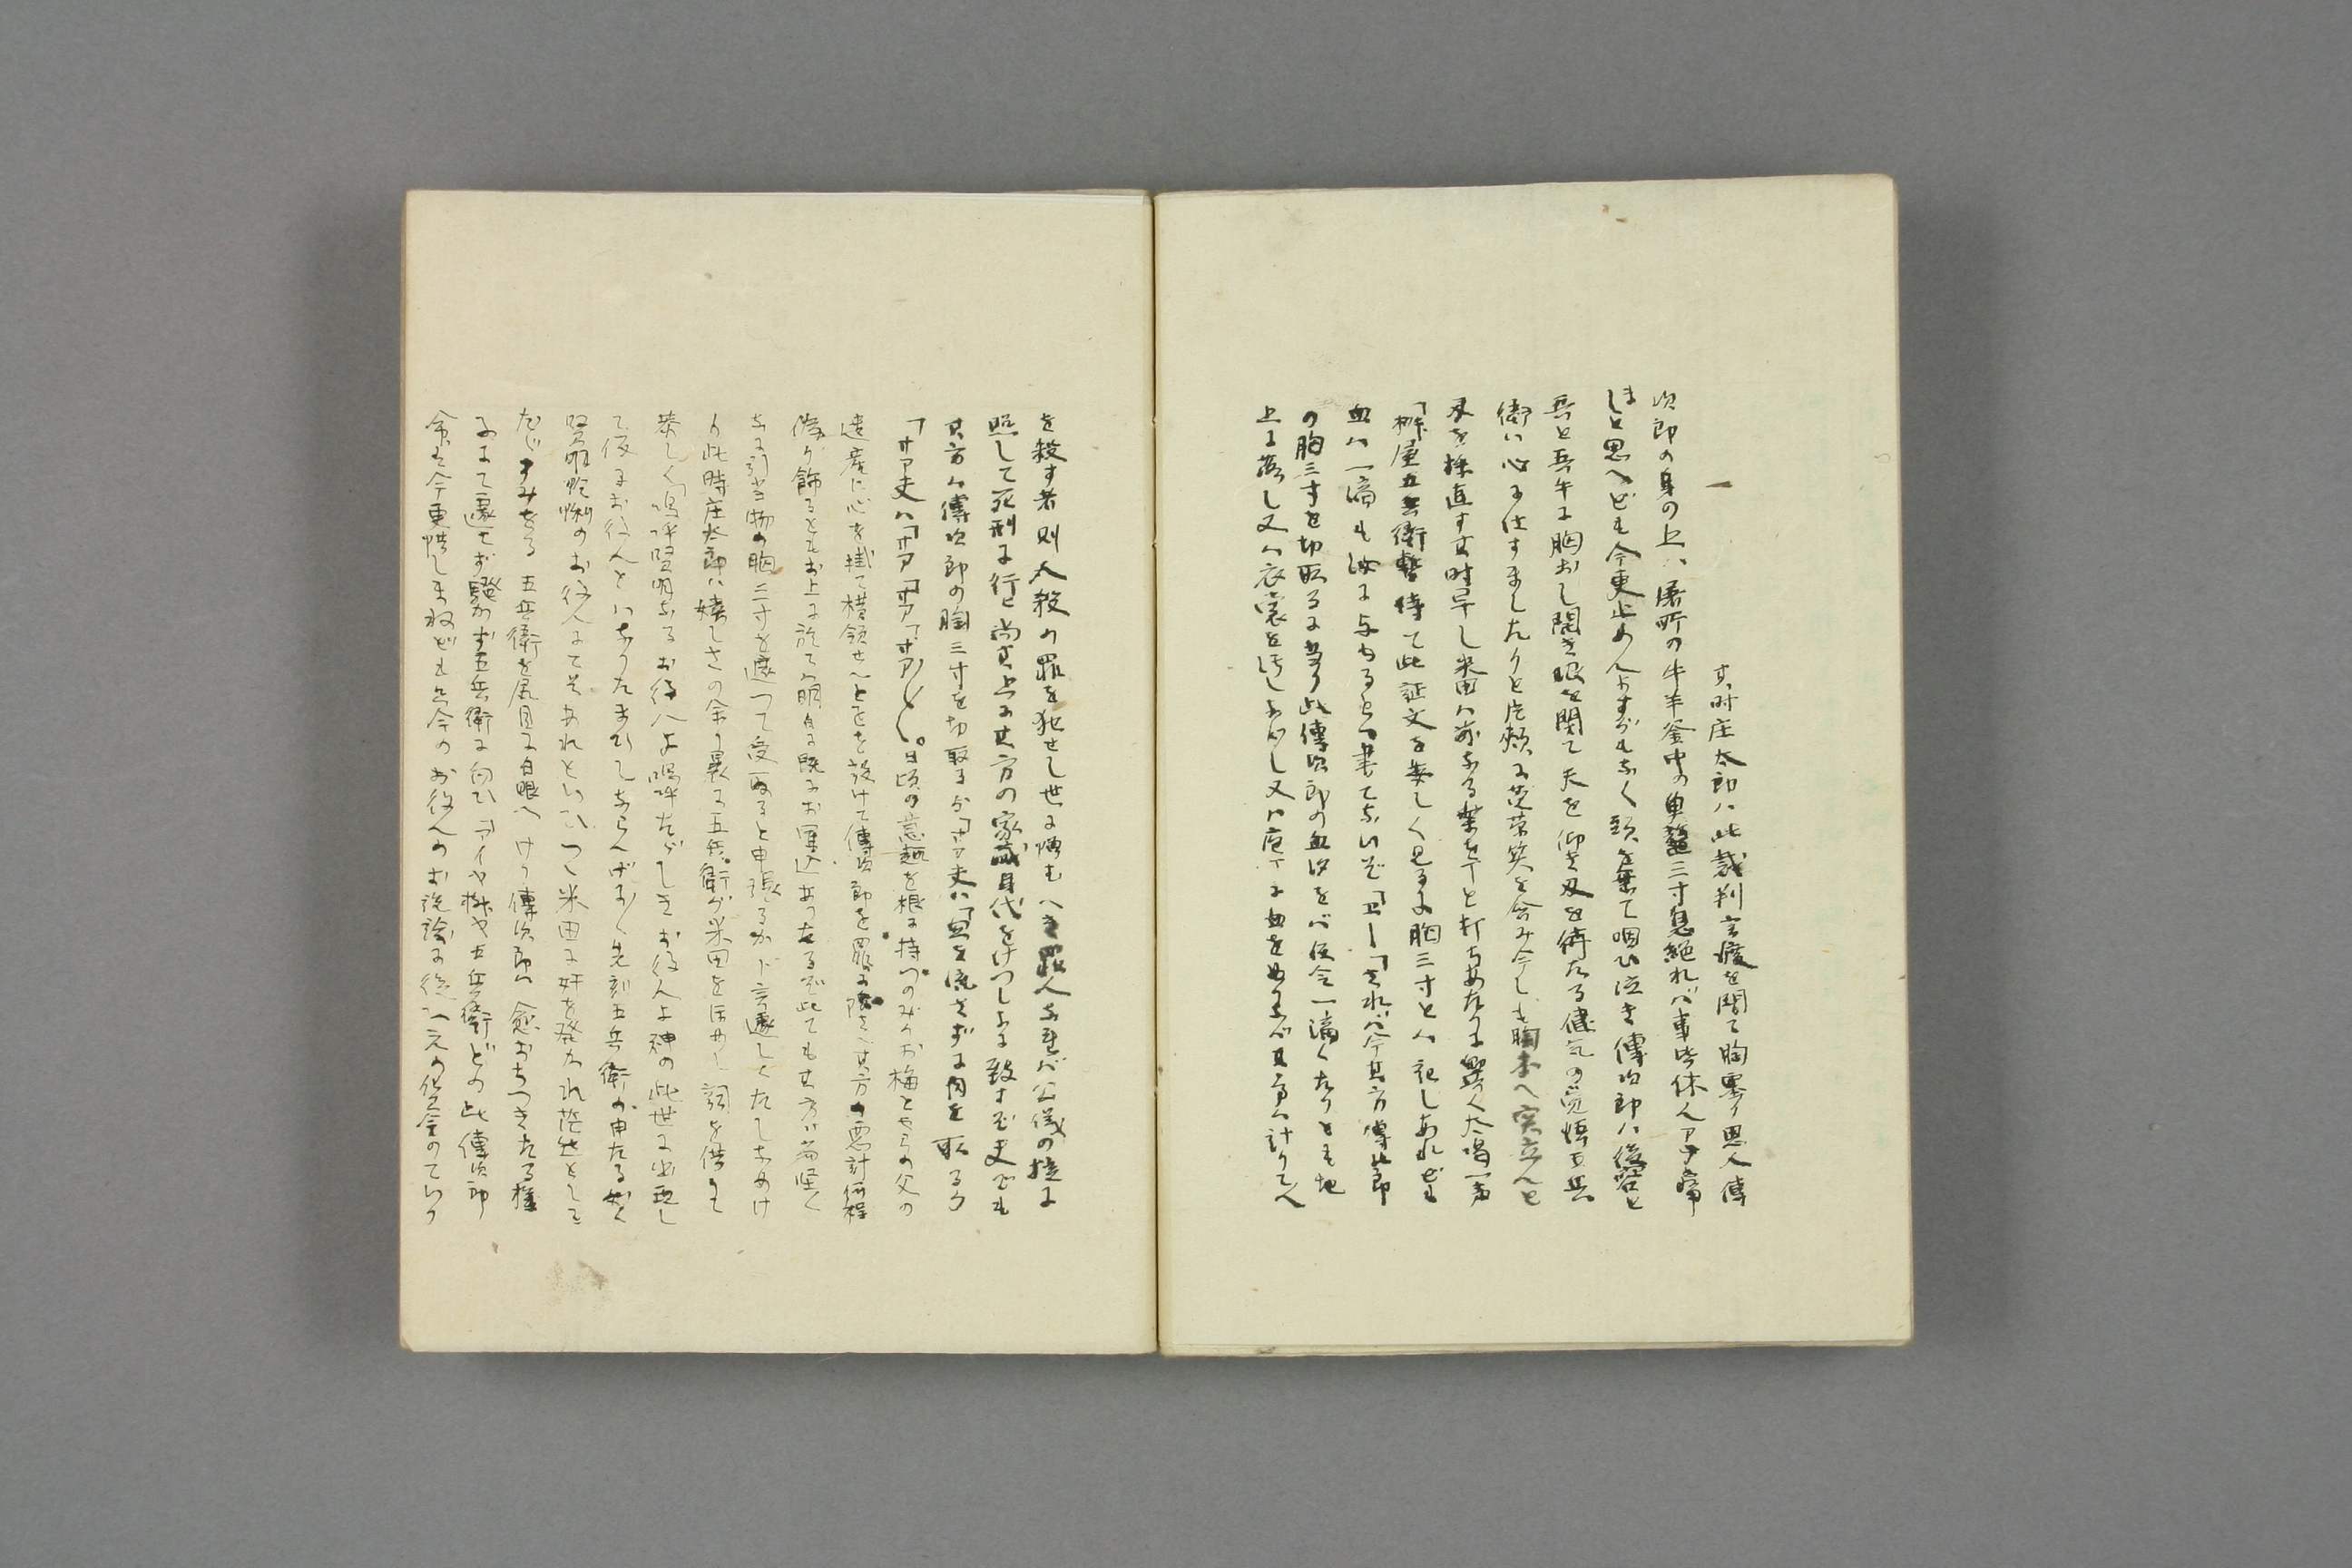 一
其时庄太郎ハ此裁判言渡を聞て胸塞り恩人傳
次郎の身の上ハ屠所の牛羊釜中の魚鼈三寸息絶れバ事皆休ん
しまと思へども今更止めんよすがもなく頭を垂て咽び泣き傳次郎ハ
兵と兵牛に胸おし開き眼を閉て天を仰き刄を待たる健気の覚悟五兵
衛ハ心に仕すましたりと片頬に笑を含み今しも胸本へ突立んと
刄を採直す其时早し米田ハ前なる案を丁と打ちあたりに響く大喝一声
「桝屋五兵衛暫待て此証文を 見るに胸三寸とハ記しあれども
血ハ一滴も汝に与ゆるとハ書てないぞ「 「されバ今其方傳次郎
の胸三寸を切取るに当り此傳次郎の血汐をバ仮令一滴くたりとも地
上に落し又ハ衣裳を汚し 又ハ庖丁に血を バ其方ハ計りて人
を殺す者則大殺の罪を犯せし世に憎むへき罪人なれバ公儀の掟に
照して死刑に行ヒ尚其上に其方の家蔵身代をけつしよに致すぞ夫でも
其方ハ傳次郎の胸三寸を切取るか「サア夫ハ「血を流さずに肉を取るか
「サア夫ハ「サア「サア「サア〳〵。日頃の意趣を根に持つのみかお梅とやらの父の
遺産に心を掛て横領せんと を設けて傳次郎を罪に陥さん其方の悪計何程
偽り飾るともお上に於てハ明白に既にお軍込あつたるぞ此ても其方ハ尚堅く
なに引当物の胸三寸を遮つて受取ると申張るか ト言 たしなめけ
り此時庄太郎ハ嬉しさの余り裏に五兵衛が米田をほめし詞を借りて
恭しく「嗚呼賢明なるお役人よ嗚呼たゞしきお役人よ神の此世に出現し
て仮にお役人と なりたまひしならんげに〳〵先刻五兵衛の申たる如く
賢明怜悧のお役人にてそあれといひつゝ米田に奸を発かれ茫然として
たゞすみをる五兵衛を尻目に白眼へけり傳次郎ハ愈おちつきたる様
にて遽てず騒がず五兵衛に向ひ「アイや桝や五兵衛どの此傳次郎
命ハ今更惜しまねども只今のお役人のお説諭に従ハ元の貸金のていり